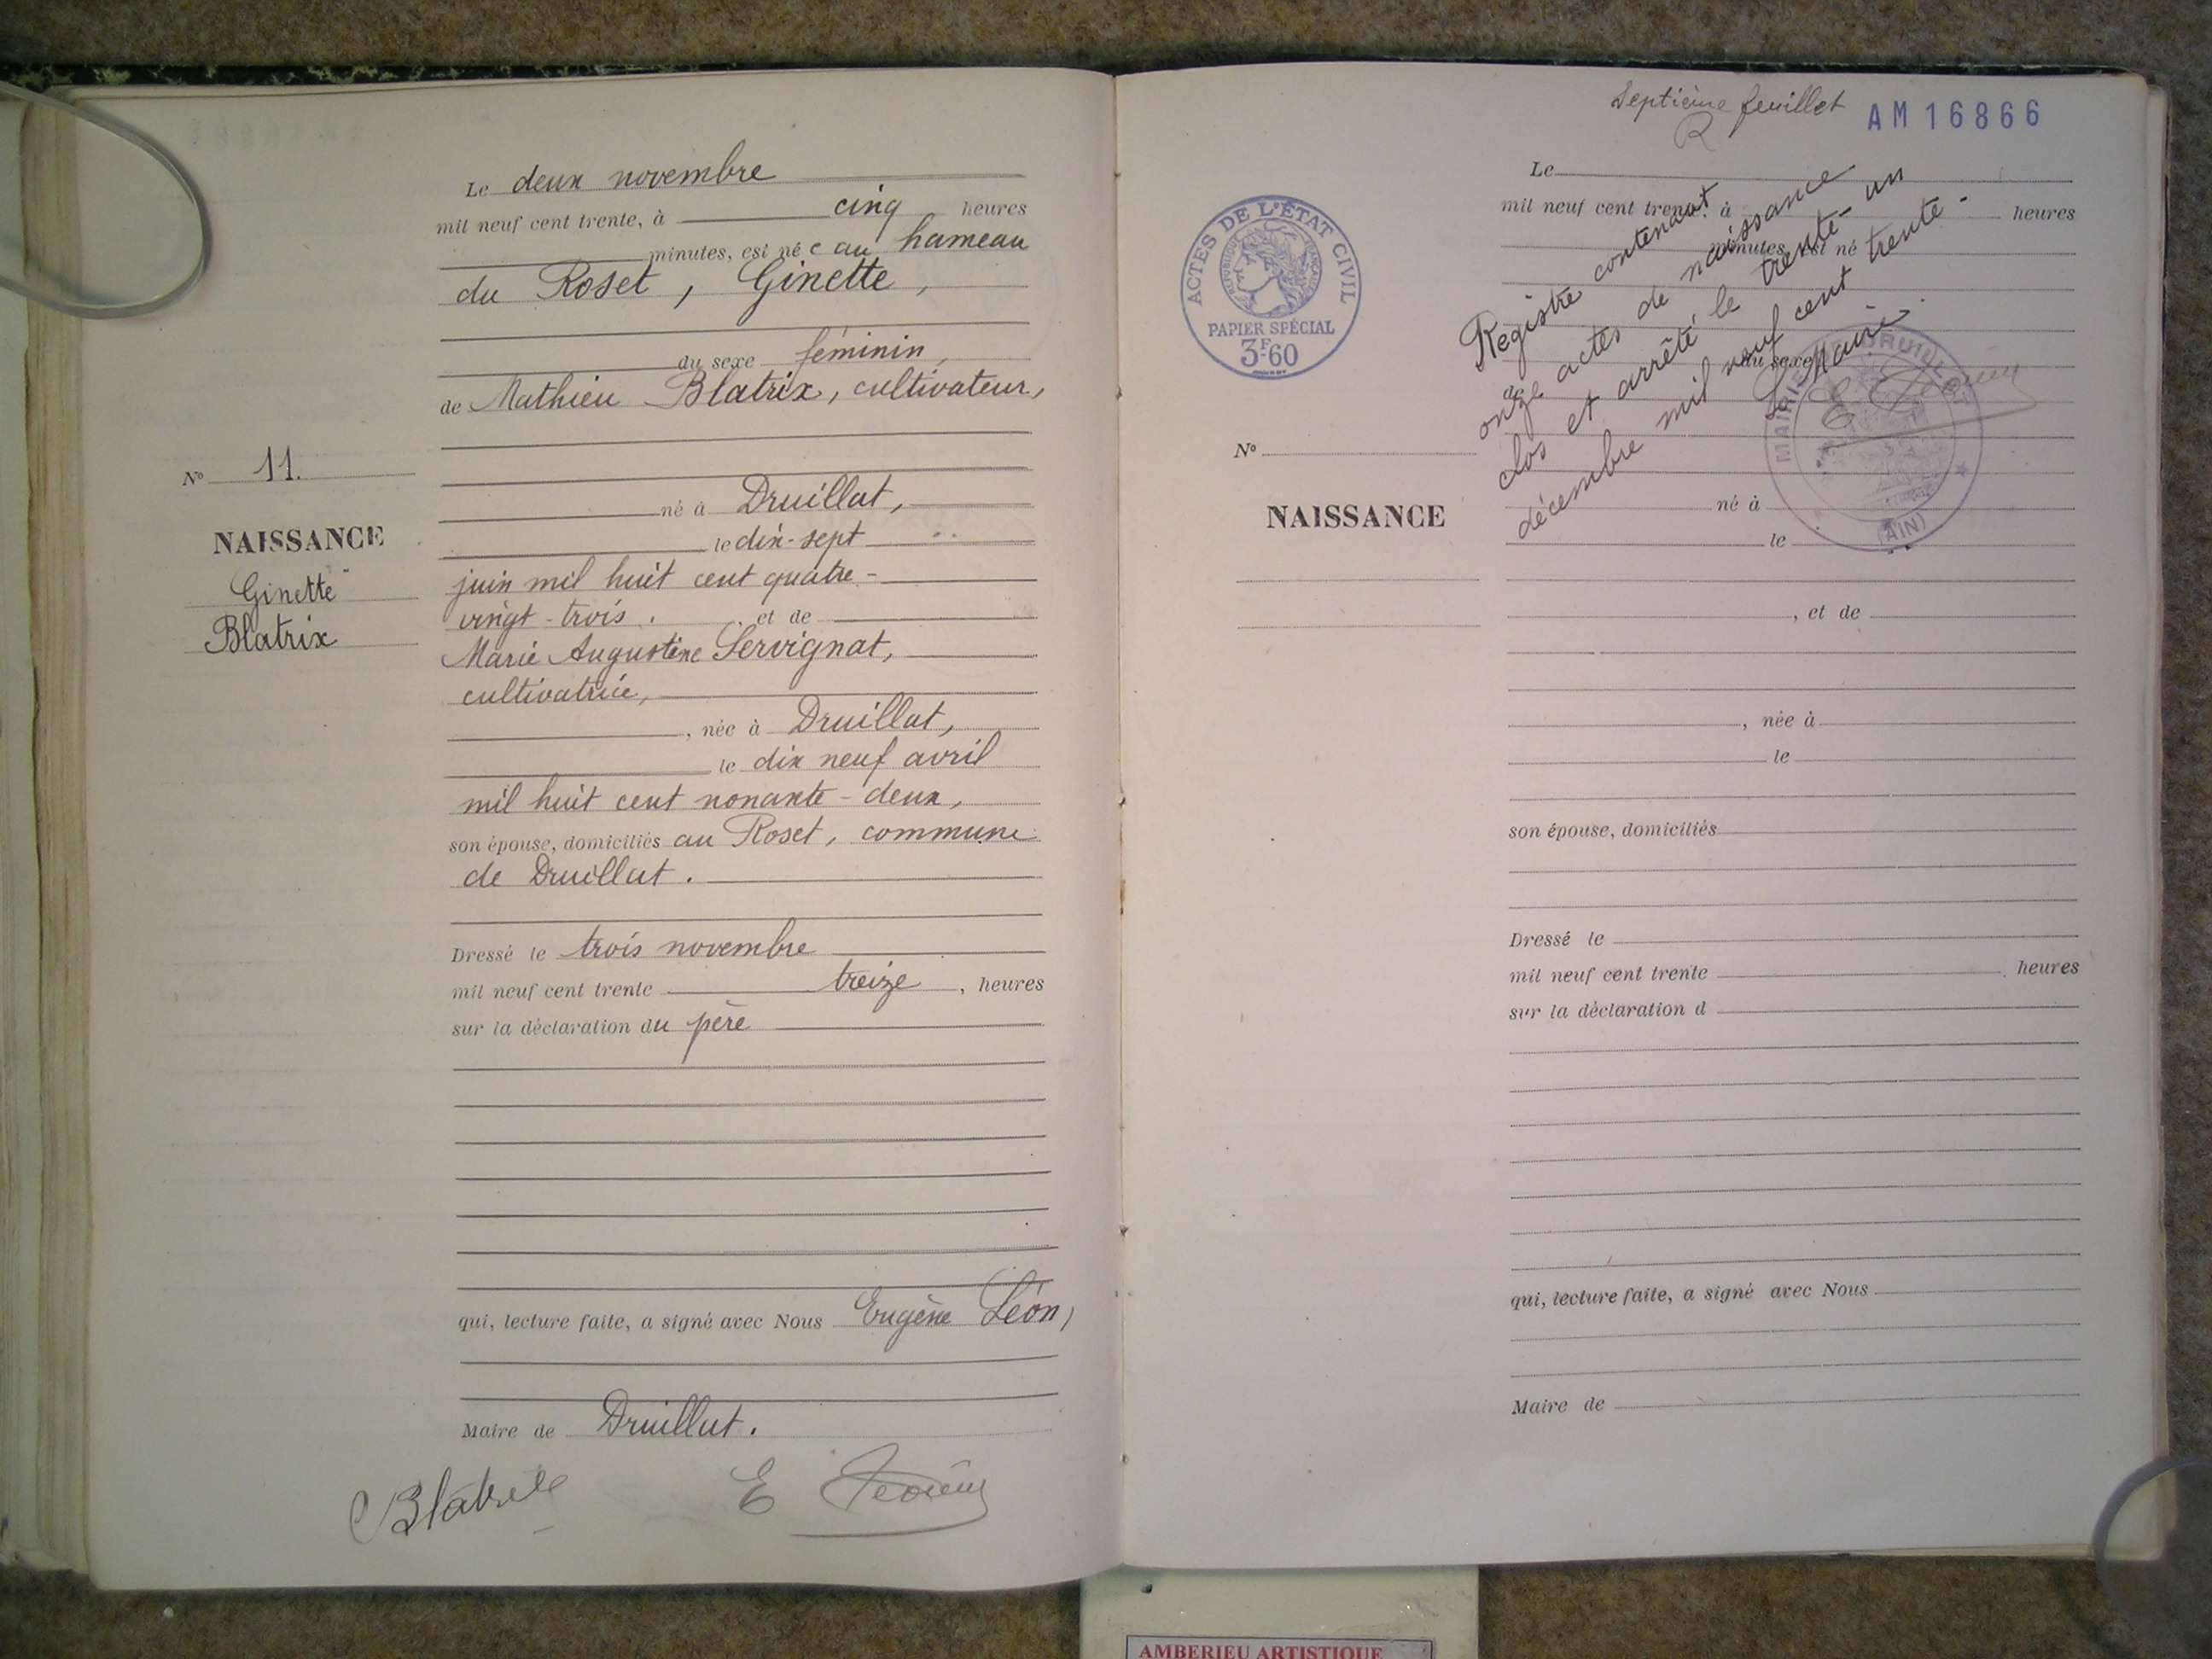 Le deux novembre
mil neuf cent trente, à cinq heures
minutes, est née au hameau
du Roset, Ginette,
du sexe féminin,
de Mathieu Blatrix, cultivateur,
né à Druillat,
le dix-sept
juin mil huit cent quatre-
vingt-trois. et de
Marie Augustine Servignat,
cultivatrice,
, née à Druillat,
le dix neuf avril
mil huit cent nonante-deux,
son épouse, domiciliés au Roset, commune
de Druillat.
Dressé le trois novembre
mil neuf cent trente treize, heures
sur la déclaration du père
qui, lecture faite, a signé avec Nous Eugène Léon,
Maire de Druillat.
N° 11.
NAISSANCE
Ginette
Blatrix
Septième feuillet
AM 16866
ACTES DE L'ÉTAT CIVIL
RÉPUBLIQUE FRANÇAISE
PAPIER SPÉCIAL
3F60
Registre contenant
onze actes de naissance
clos et arrêté le trente-un
décembre mil neuf cent trente.
Le Maire.
MAIRIE DE DRUILLAT
(AIN)
Le
mil neuf cent trente, à heures
minutes, est né
du sexe
de
né à
le
, et de
, née à
le
son épouse, domiciliés
Dressé le
mil neuf cent trente heures
sur la déclaration d
qui, lecture faite, a signé avec Nous
Maire de
N°
NAISSANCE
AMBERIEU ARTISTIQUE